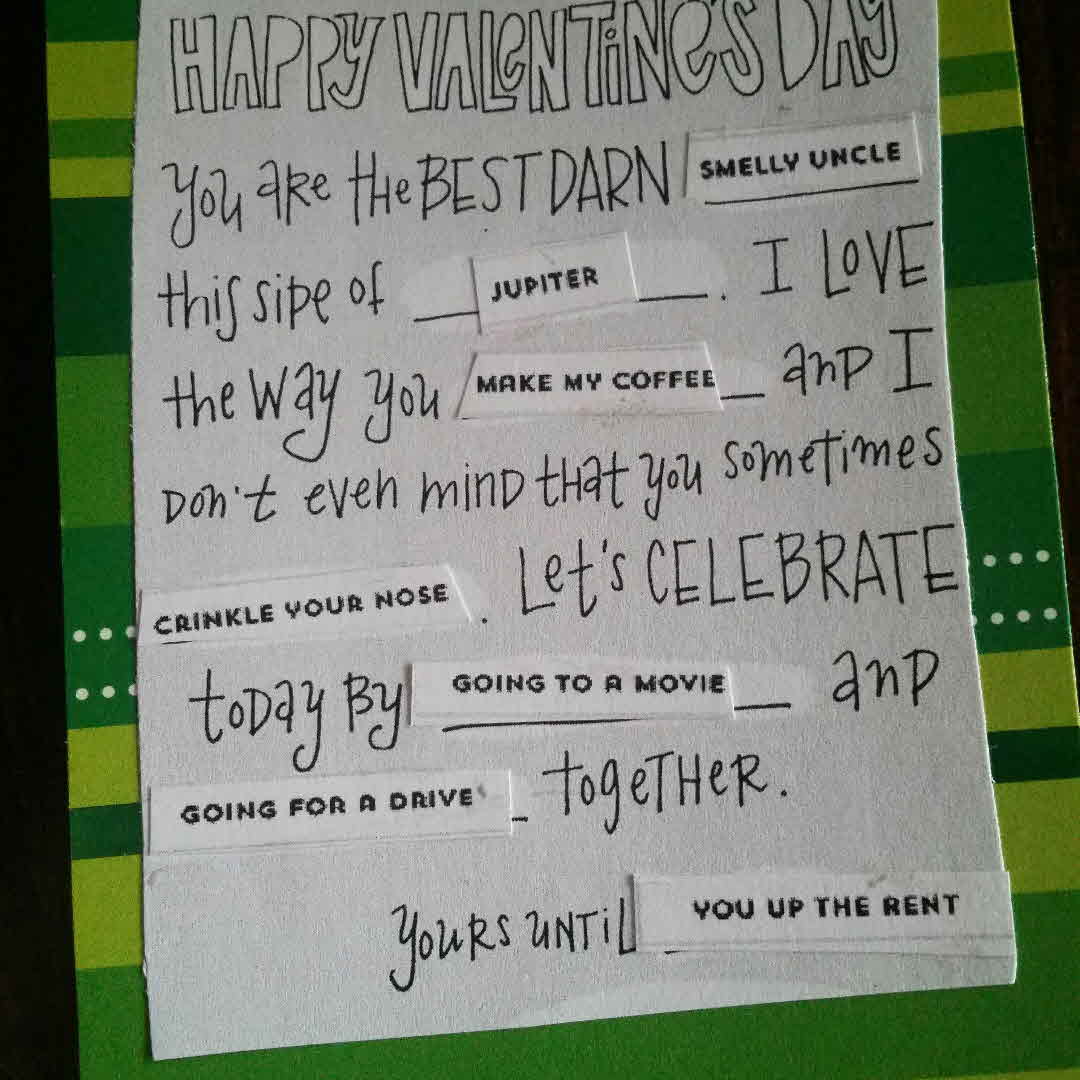 HAPPY VALENTINE'S DAY
You are the BEST DARN SMELLY UNCLE
this side of JUPITER. I LOVE
the way you MAKE MY COFFEE and I
Don't even mind that you sometimes
CRINKLE YOUR NOSE. Let's CELEBRATE
today By GOING TO A MOVIE and
GOING FOR A DRIVE together.
Yours until YOU UP THE RENT